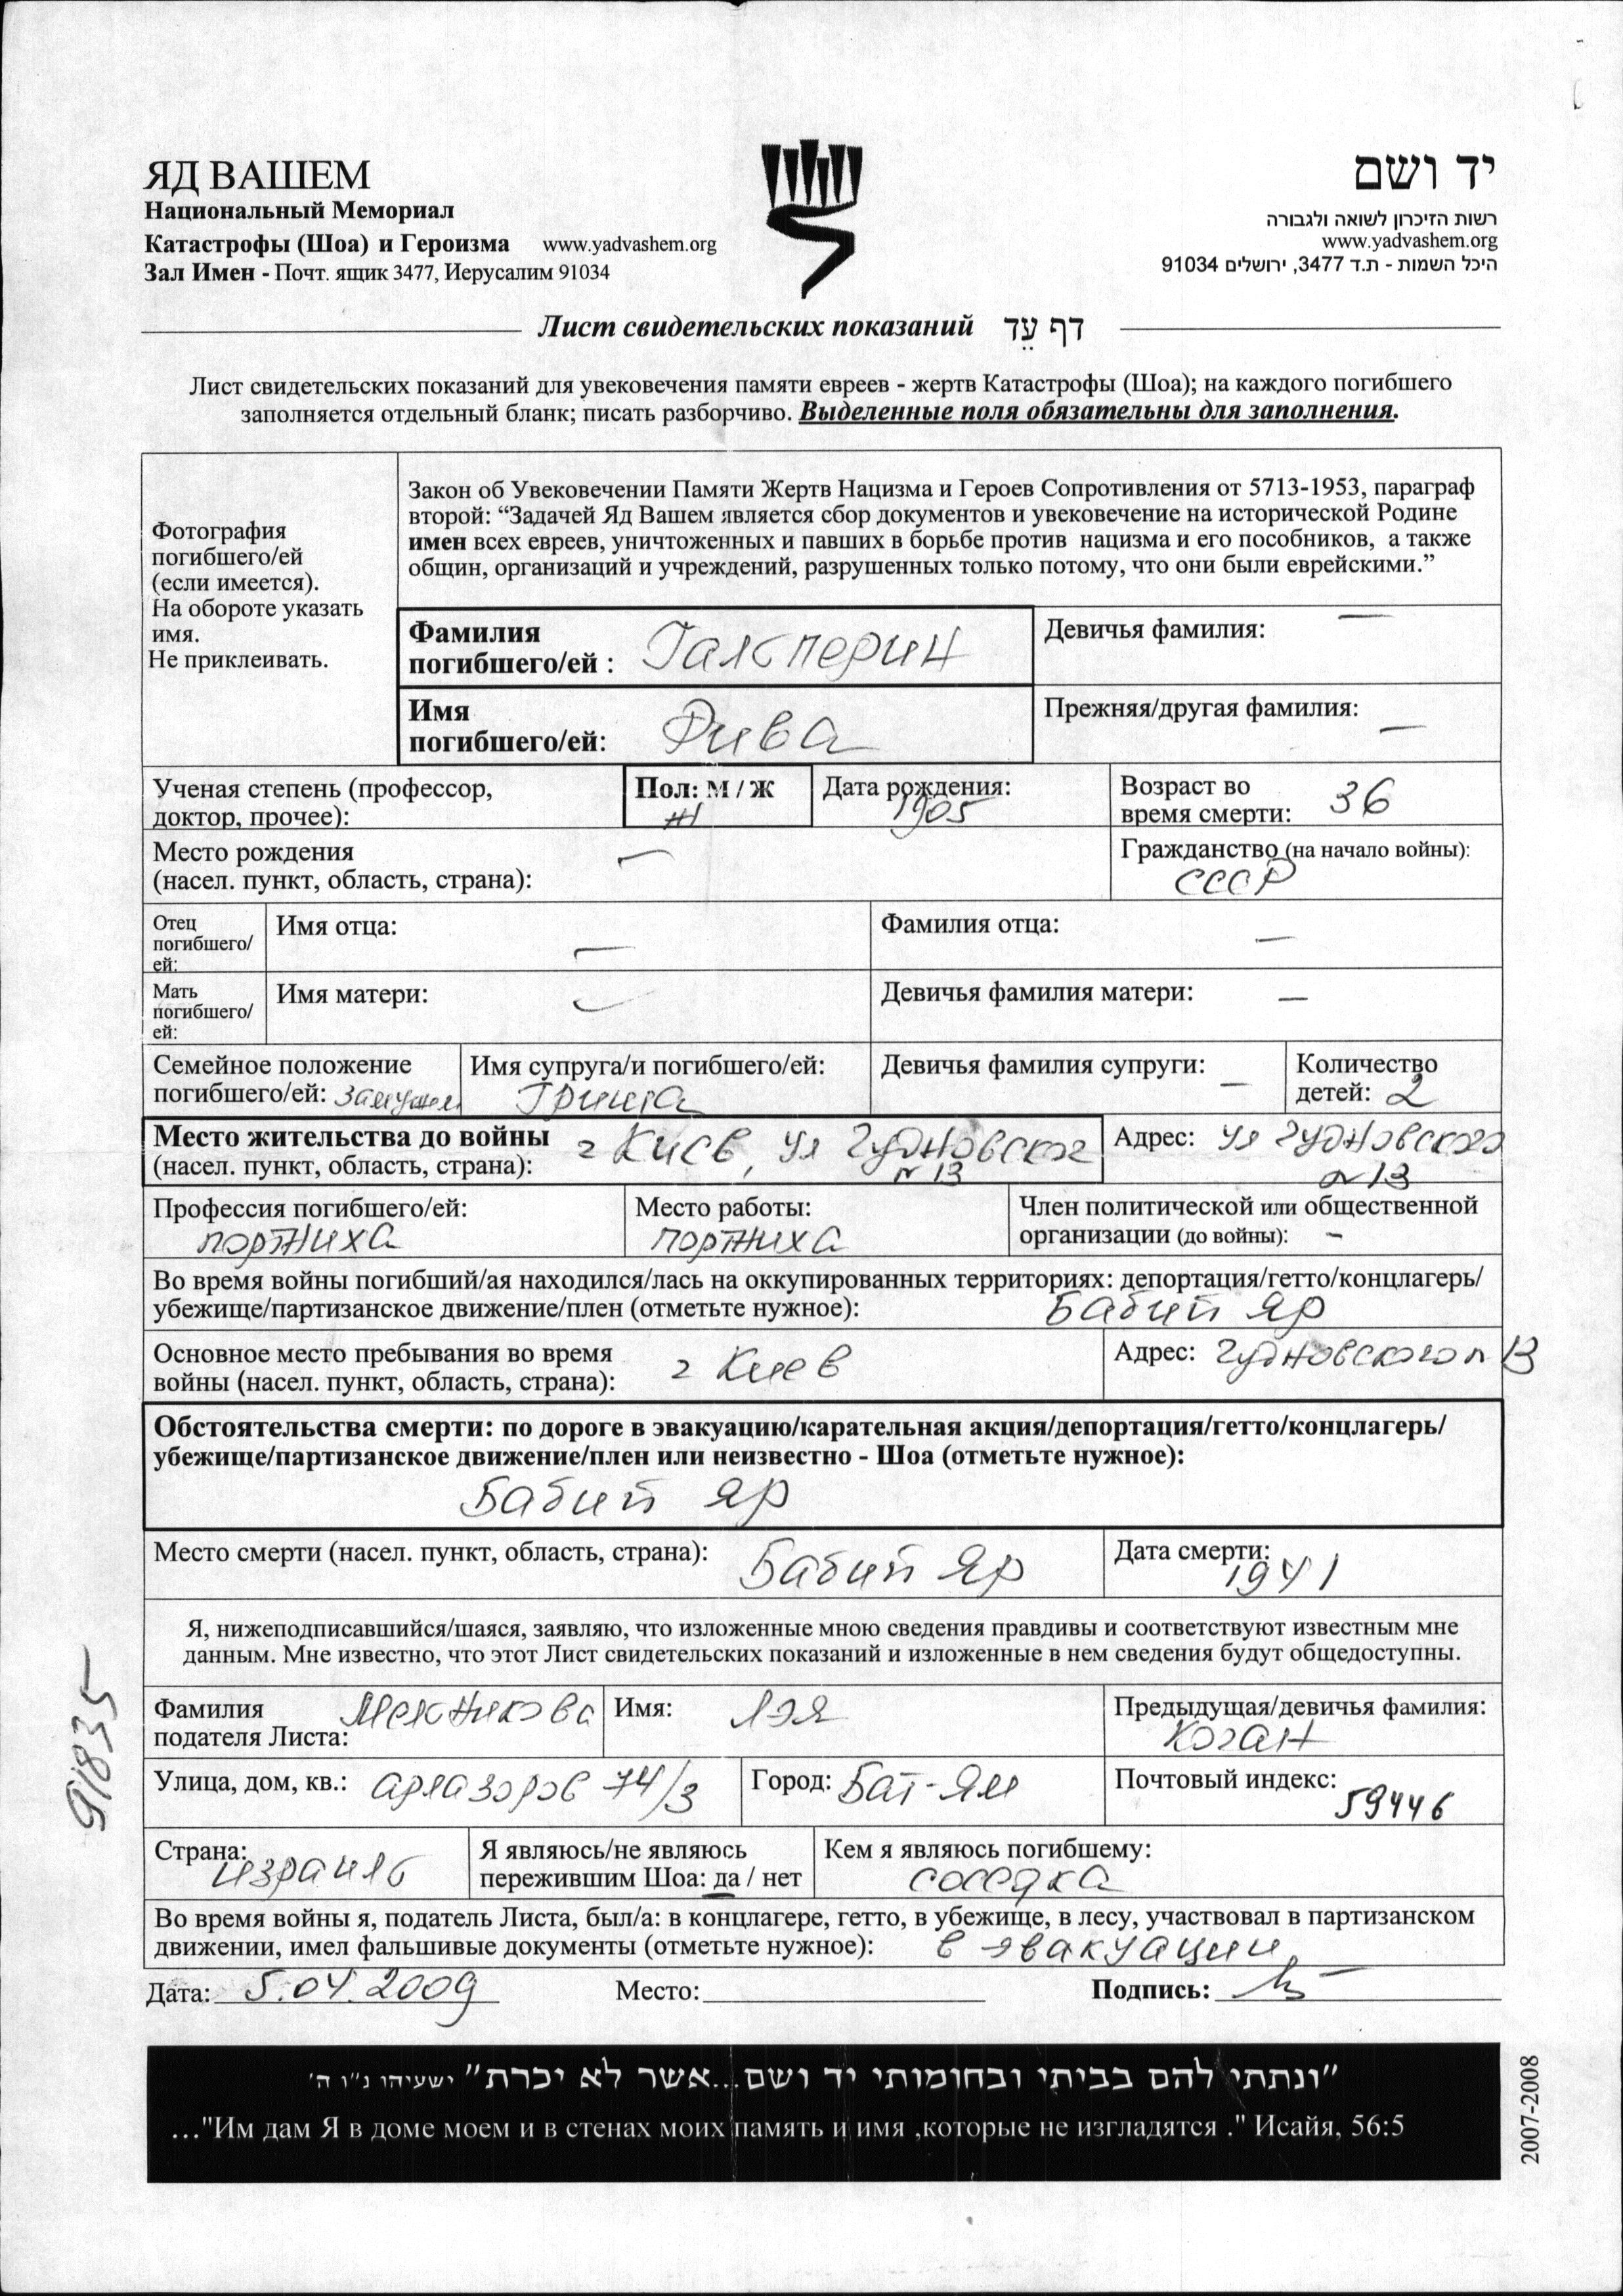 ЯД ВАШЕМ
Национальный Мемориал
Катастрофы (Шоа) и Героизма www.yadvashem.org
Зал Имен - Почт. ящик 3477, Иерусалим 91034
יד ושם
רשות הזיכרון לשואה ולגבורה
www.yadvashem.org
היכל השמות - ת.ד 3477, ירושלים 91034
Лист свидетельских показаний דף עֵד
Лист свидетельских показаний для увековечения памяти евреев - жертв Катастрофы (Шоа); на каждого погибшего
заполняется отдельный бланк; писать разборчиво. Выделенные поля обязательны для заполнения.
Фотография
погибшего/ей
(если имеется).
На обороте указать
имя.
Не приклеивать.
Закон об Увековечении Памяти Жертв Нацизма и Героев Сопротивления от 5713-1953, параграф
второй: “Задачей Яд Вашем является сбор документов и увековечение на исторической Родине
имен всех евреев, уничтоженных и павших в борьбе против нацизма и его пособников, а также
общин, организаций и учреждений, разрушенных только потому, что они были еврейскими.”
Фамилия
погибшего/ей : Гальперин
Девичья фамилия: —
Имя
погибшего/ей: Рива
Прежняя/другая фамилия: —
Ученая степень (профессор,
доктор, прочее):
Пол: М / Ж
Ж
Дата рождения:
1905
Возраст во
время смерти: 36
Место рождения
(насел. пункт, область, страна): —
Гражданство (на начало войны):
СССР
Отец
погибшего/
ей:
Имя отца: —
Фамилия отца: —
Мать
погибшего/
ей:
Имя матери: —
Девичья фамилия матери: —
Семейное положение
погибшего/ей: замужем
Имя супруга/и погибшего/ей:
Гриша
Девичья фамилия супруги: —
Количество
детей: 2
Место жительства до войны
(насел. пункт, область, страна): г Киев, ул Гудновског
n 13
Адрес: ул Гудновского
n 13
Профессия погибшего/ей:
портниха
Место работы:
портниха
Член политической или общественной
организации (до войны): -
Во время войны погибший/ая находился/лась на оккупированных территориях: депортация/гетто/концлагерь/
убежище/партизанское движение/плен (отметьте нужное): Бабий Яр
Основное место пребывания во время
войны (насел. пункт, область, страна): г Киев
Адрес: Гудновского n 13
Обстоятельства смерти: по дороге в эвакуацию/карательная акция/депортация/гетто/концлагерь/
убежище/партизанское движение/плен или неизвестно - Шоа (отметьте нужное):
Бабий Яр
Место смерти (насел. пункт, область, страна): Бабий Яр
Дата смерти:
1941
Я, нижеподписавшийся/шаяся, заявляю, что изложенные мною сведения правдивы и соответствуют известным мне
данным. Мне известно, что этот Лист свидетельских показаний и изложенные в нем сведения будут общедоступны.
Фамилия
подателя Листа: Мельникова
Имя: Лэя
Предыдущая/девичья фамилия:
Коган
Улица, дом, кв.: Арлазоров 74/3
Город: Бат-Ям
Почтовый индекс:
59446
Страна:
Израиль
Я являюсь/не являюсь
пережившим Шоа: да / нет
Кем я являюсь погибшему:
соседка
Во время войны я, податель Листа, был/а: в концлагере, гетто, в убежище, в лесу, участвовал в партизанском
движении, имел фальшивые документы (отметьте нужное): в эвакуации
Дата: 5.04.2009 Место: Подпись:
91835
"ונתתי להם בביתי ובחומותי יד ושם...אשר לא יכרת" ישעיהו נ"ו ה'
..."Им дам Я в доме моем и в стенах моих память и имя ,которые не изгладятся ." Исайя, 56:5
2007-2008